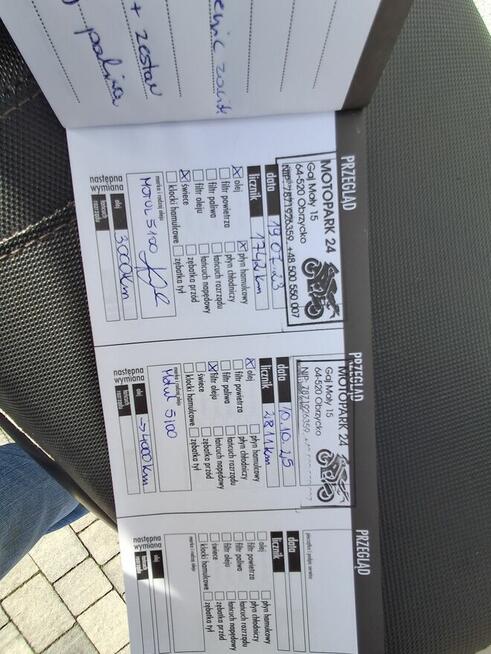 paliwa
+ zestaw
PRZEGLĄD
MOTOPARK 24
Gaj Mały 15
64-520 Obrzycko
NIP: 7871926359, +48 500 550 007
data 19.07.23
licznik 1742 km
olej
płyn hamulcowy
filtr powietrza
płyn chłodniczy
filtr paliwa
łańcuch rozrządu
filtr oleju
łańcuch napędowy
świece
zębatka przód
klocki hamulcowe
zębatka tył
marka i rodzaj oleju
MOTUL 5100
następna wymiana
olej
3000km
łańcuch rozrządu
PRZEGLĄD
MOTOPARK 24
Gaj Mały 15
64-520 Obrzycko
NIP: 7871926359
data 10.10.25
licznik 2811km
olej
płyn hamulcowy
filtr powietrza
płyn chłodniczy
filtr paliwa
łańcuch rozrządu
filtr oleju
łańcuch napędowy
świece
zębatka przód
klocki hamulcowe
zębatka tył
marka i rodzaj oleju
Motul 5100
następna wymiana
olej
4000km
PRZEGLĄD
data
licznik
olej
płyn hamulcowy
filtr powietrza
płyn chłodniczy
filtr paliwa
łańcuch rozrządu
filtr oleju
łańcuch napędowy
świece
zębatka przód
klocki hamulcowe
zębatka tył
marka i rodzaj oleju
następna wymiana
olej